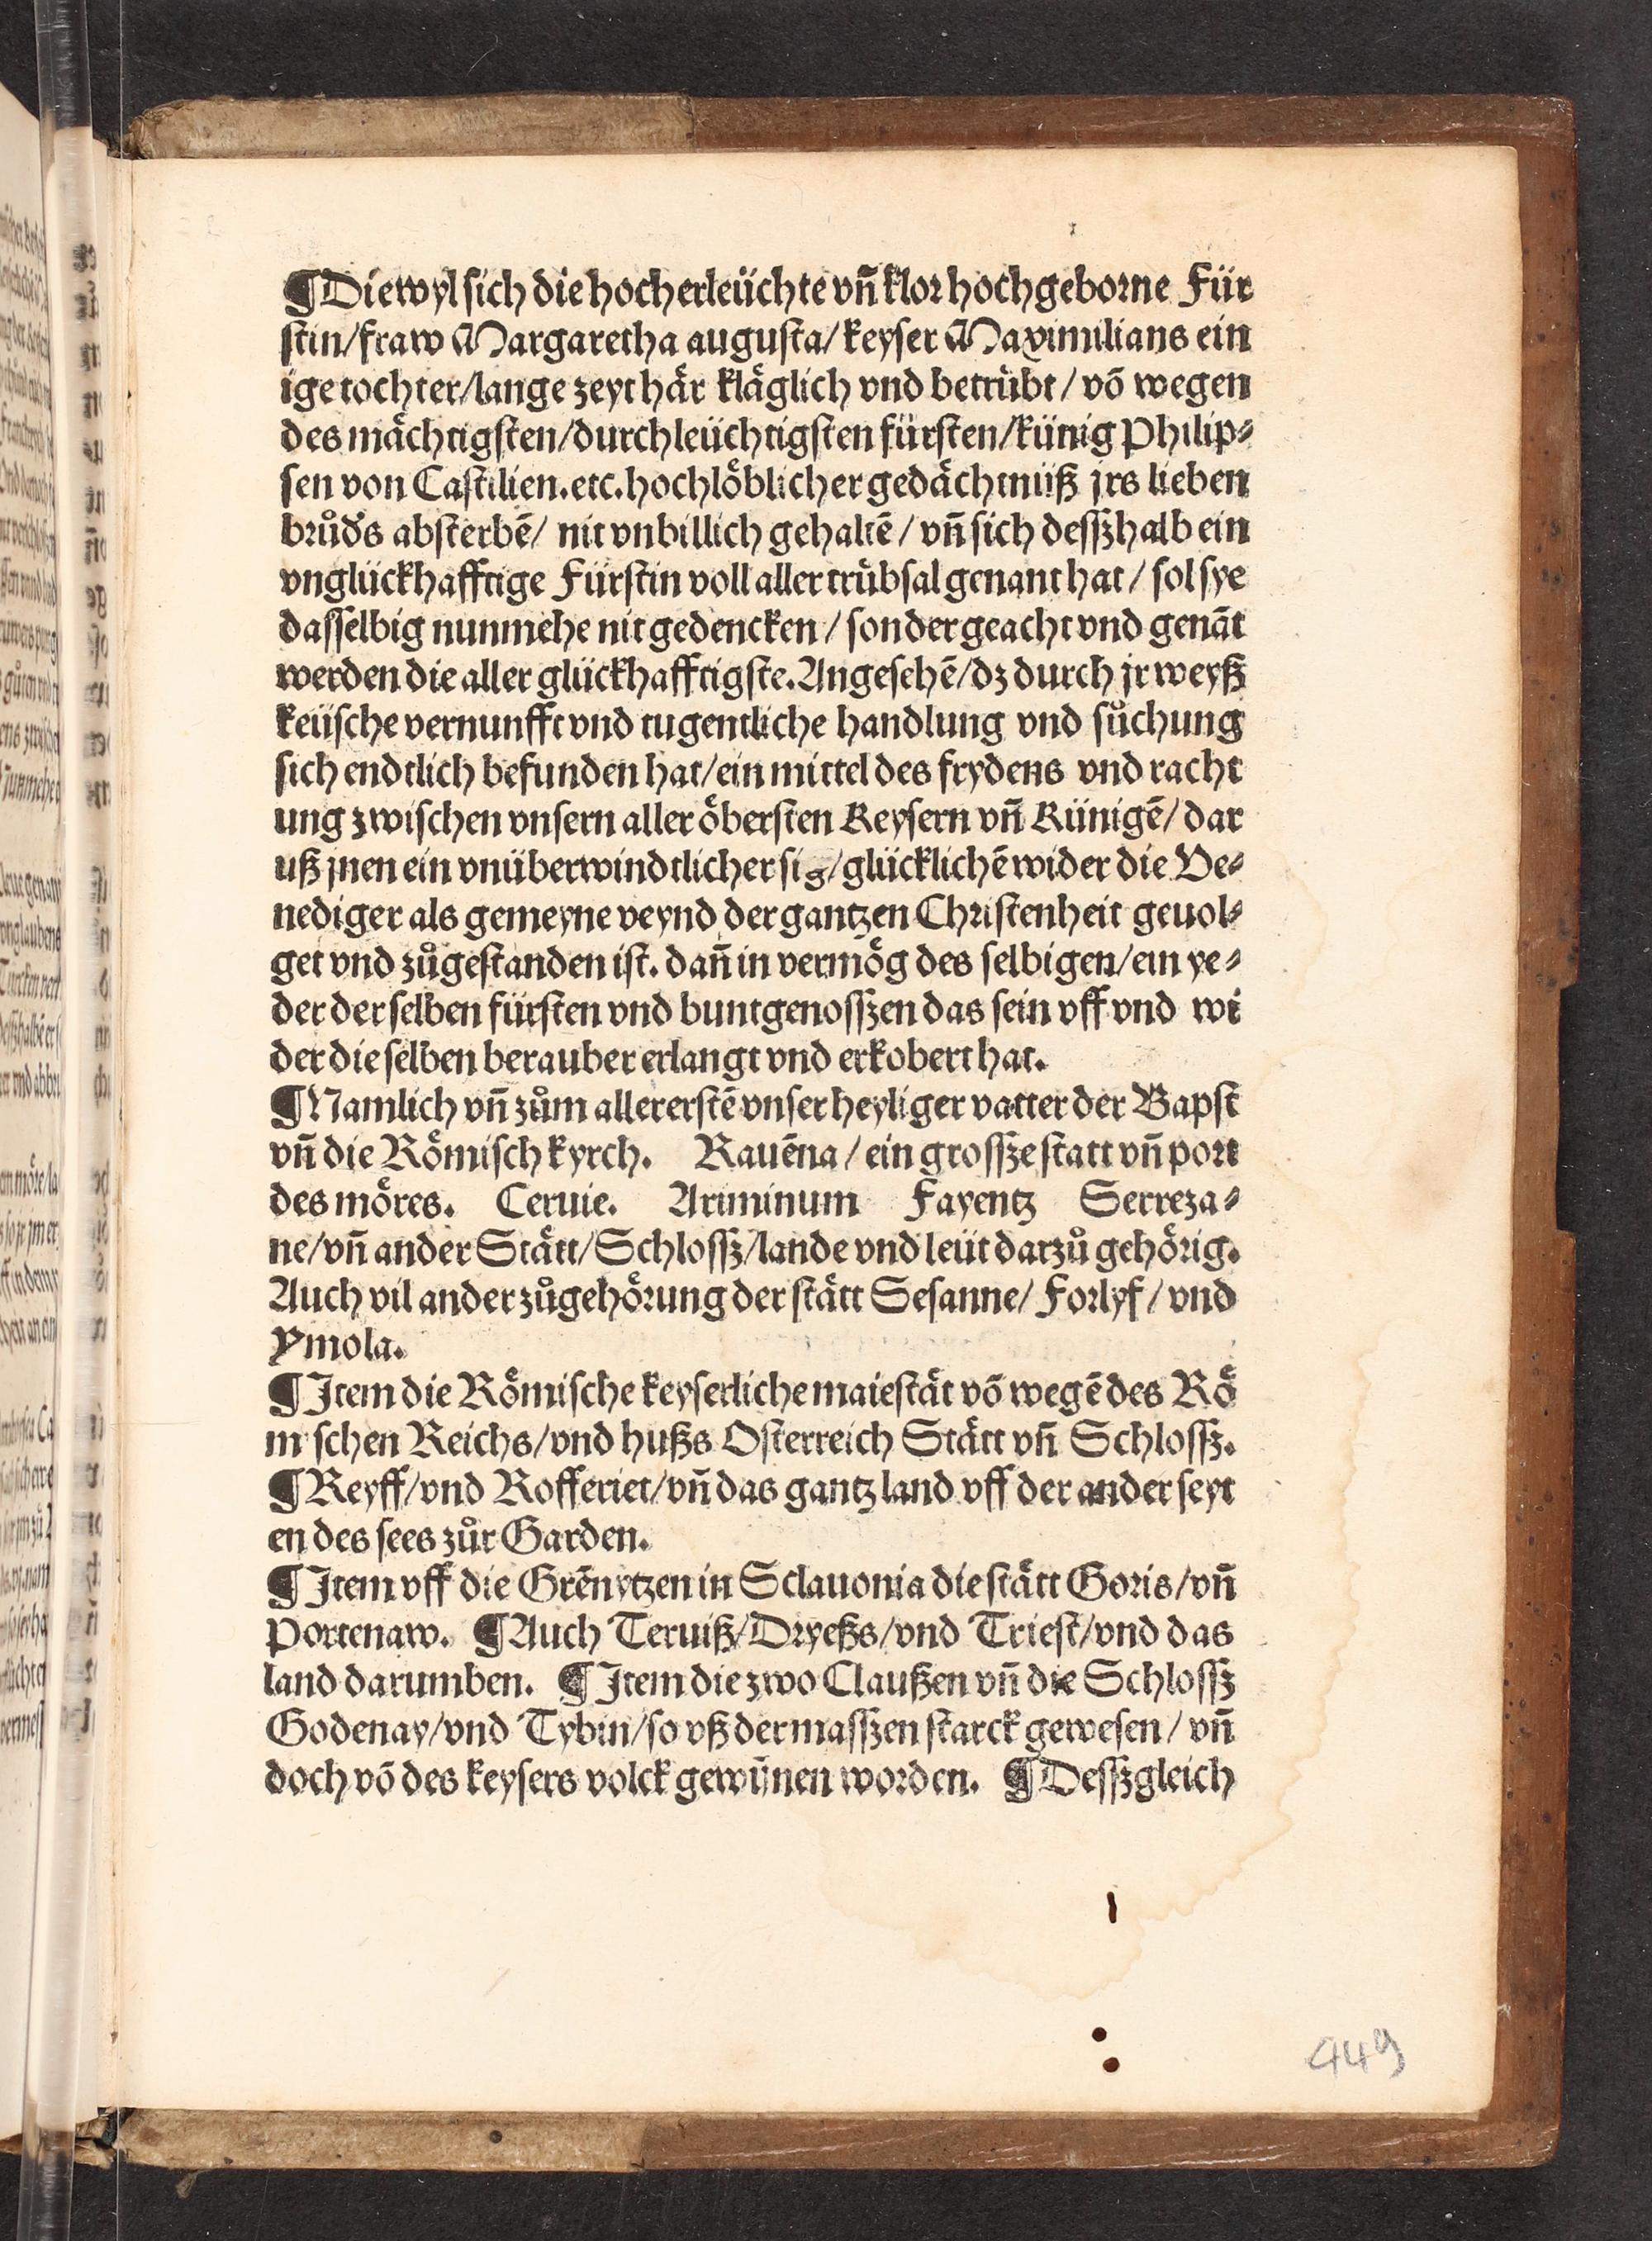 ¶Diewyl sich die hocherleüchte vñ klor hochgeborne Für
stin/fraw Margaretha augusta/ keyser Maximilians ein
ige tochter/lange zeyt här kläglich vnd betrübt / võ wegen
des mächtigsten/durchleüchtigsten fürsten/künig Philip⸗
sen von Castilien.etc.hochlöblicher gedächtnüß jrs lieben
brůds absterbẽ/ nit vnbillich gehaltẽ / vñ sich desszhalb ein
vnglückhafftige Fürstin voll aller trübsal genant hat / sol sye
dasselbig nunmehe nit gedencken / sonder geacht vnd genãt
werden die aller glückhafftigste. Angesehẽ/dz durch jr weyß
keüsche vernunfft vnd tugentliche handlung vnd sůchung
sich endtlich befunden hat/ein mittel des frydens vnd racht
ung zwischen vnsern aller öbersten Keysern vñ Künigẽ/ dar
uß jnen ein vnüberwindtlicher sig/glücklichẽ wider die Ve⸗
nediger als gemeyne veynd der gantzen Christenheit geuol⸗
get vnd zůgestanden ist. dañ in vermög des selbigen/ein ye⸗
der der selben fürsten vnd buntgenosszen das sein vff vnd wi
der die selben berauber erlangt vnd erkobert hat.
¶Namlich vñ zům allererstẽ vnser heyliger vatter der Bapst
vñ die Römisch kyrch. Rauẽna / ein grossze statt vñ port
des möres. Ceruie. Ariminum Fayentz Serreza⸗
ne/vñ ander Stätt/Schlossz/lande vnd leüt darzů gehörig.
Auch vil ander zůgehörung der stätt Sesanne/ Forlyf / vnd
Ymola.
¶Item die Römische keyserliche maiestät võ wegẽ des Rö
mischen Reichs/vnd hußs Osterreich Stätt vñ Schlossz.
¶Reyff/vnd Rofferiet/vñ das gantz land vff der ander seyt
en des sees zůr Garden.
¶Item vff die Grẽnytzen in Sclauonia die stätt Goris/vñ
Portenaw. ¶Auch Teruiß/Dryeßs/vnd Triest/vnd das
land darumben. ¶Item die zwo Claußen vñ die Schlossz
Godenay/vnd Tybin/so vß dermasszen starck gewesen / vñ
doch võ des keysers volck gewũnen worden. ¶Desszgleich
449